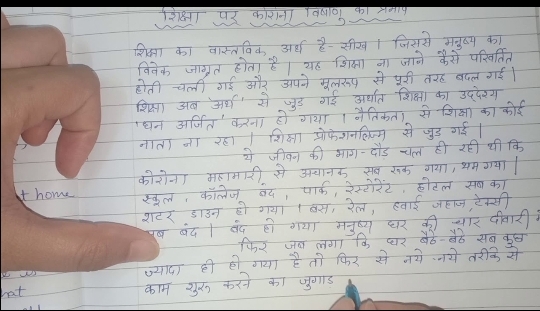 शिक्षा पर कोरोना विषाणु का प्रभाव
शिक्षा का वास्तविक अर्थ है - सीख। जिससे मनुष्य का
विवेक जागृत होता है। यह शिक्षा ना जाने कैसे परिवर्तित
होती चली गई और अपने मूलरूप से पूरी तरह बदल गई।
शिक्षा अब 'अर्थ' से जुड़ गई अर्थात शिक्षा का उद्देश्य
'धन अर्जित' करना हो गया। नैतिकता से शिक्षा का कोई
नाता ना रहा। शिक्षा प्रोफेशनलिज्म से जुड़ गई।
ये जीवन की भाग-दौड़ चल ही रही थी कि
कोरोना महामारी से अचानक सब रूक गया, थम गया।
स्कूल, कॉलेज बंद, पार्क, रेस्टोरेंट, होटल सब का
शटर डाउन हो गया। बस, रेल, हवाई जहाज, टैक्सी
सब बंद। बंद हो गया मनुष्य घर की चार दीवारी में
फिर जब लगा कि घर बैठे-बैठे सब कुछ
ज्यादा ही हो गया है तो फिर से नये-नये तरीके से
काम शुरू करने का जुगाड़
t home